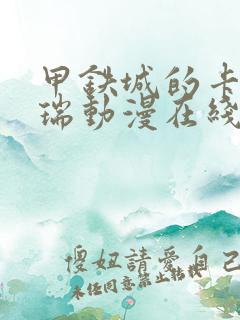 甲鉄城的卡
瑞動漫在綫
傻妞請愛自己
未经同意禁止转载